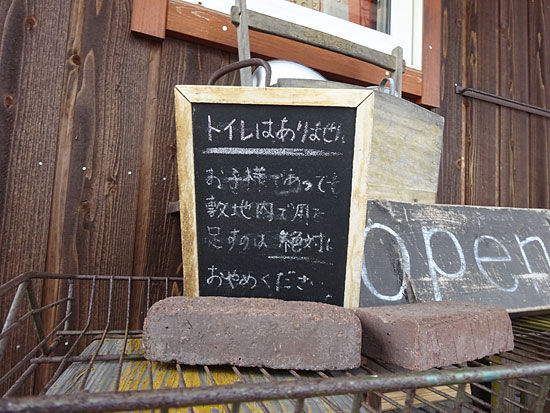 トイレはありません
お子様であっても
敷地内で用を
足すのは絶対に
おやめくださ
open